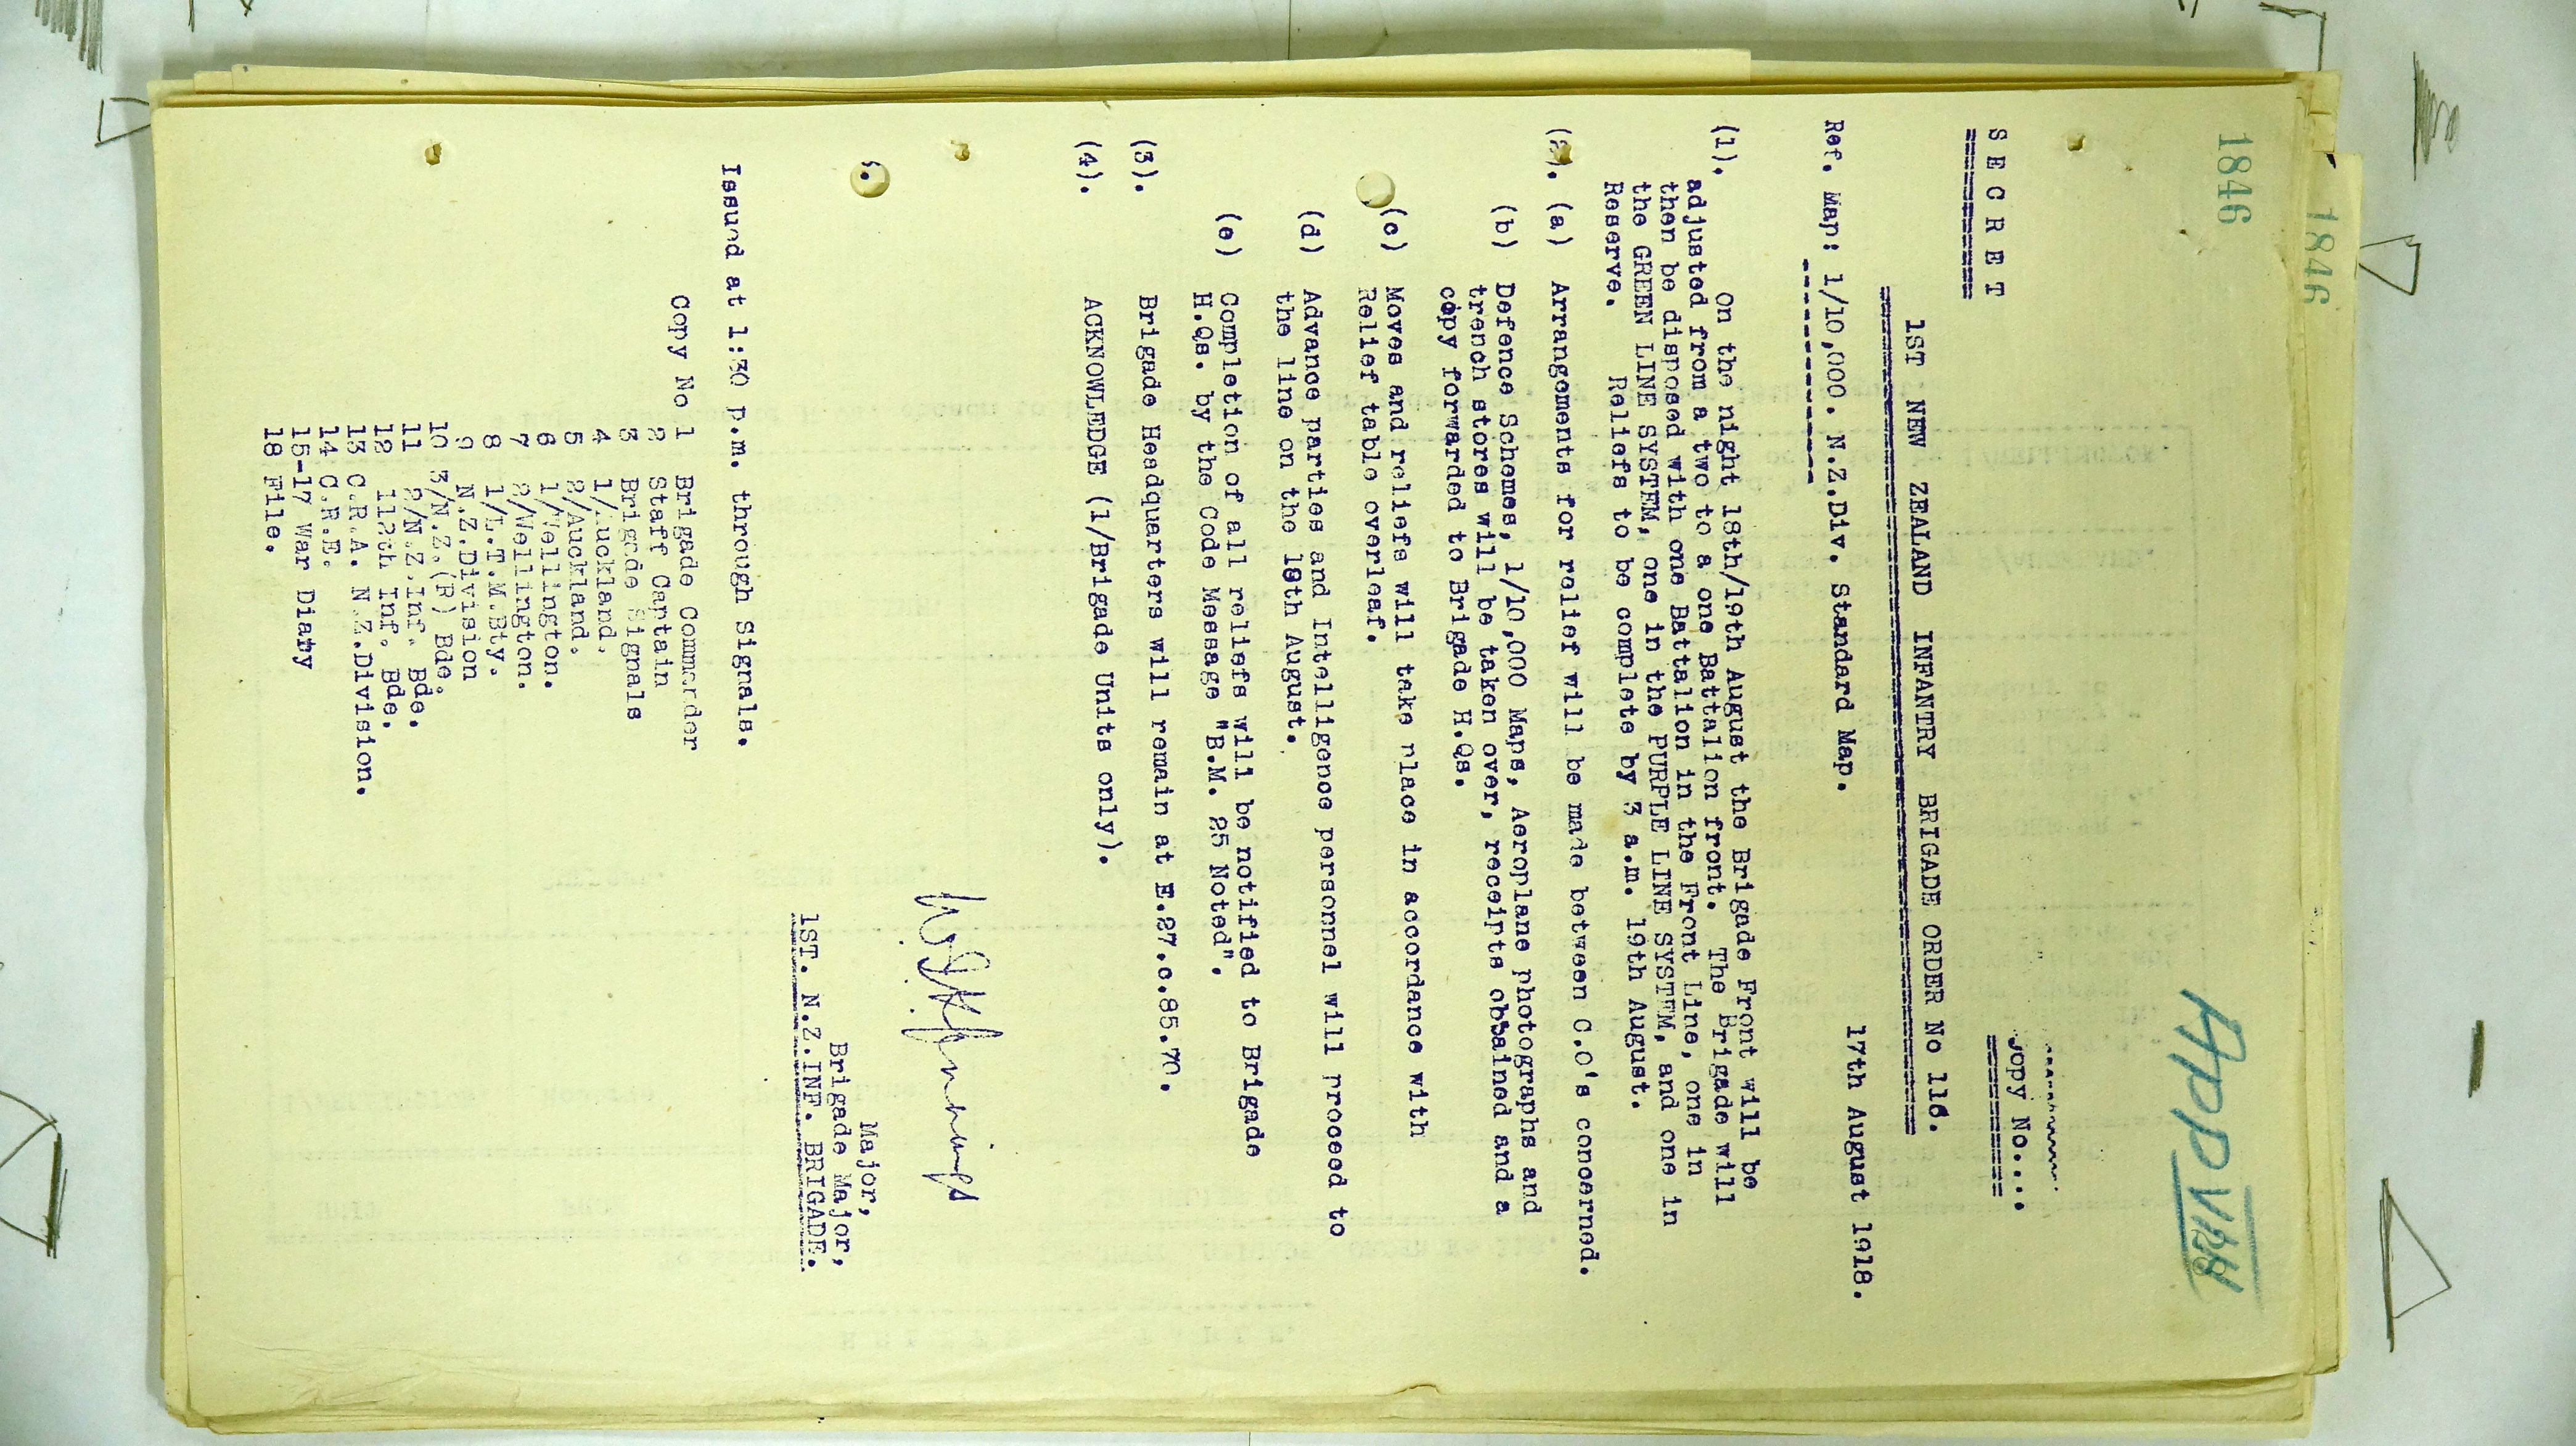 1846
1846
APP VIII
SECRET
Copy No....
1ST NEW ZEALAND INFANTRY BRIGADE ORDER No 116.
17th August 1918.
Ref. Map: 1/10,000. N.Z.Div. Standard Map.
(1). On the night 18th/19th August the Brigade Front will be
adjusted from a two to a one Battalion front. The Brigade will
then be disposed with one Battalion in the Front Line, one in
the GREEN LINE SYSTEM, one in the PURPLE LINE SYSTEM, and one in
Reserve. Reliefs to be complete by 3 a.m. 19th August.
(2). (a) Arrangements for relief will be made between C.O's concerned.
(b) Defence Schemes, 1/10,000 Maps, Aeroplane photographs and
trench stores will be taken over, receipts obtained and a
copy forwarded to Brigade H.Qs.
(c) Moves and reliefs will take place in accordance with
Relief table overleaf.
(d) Advance parties and Intelligence personnel will proceed to
the line on the 18th August.
(e) Completion of all reliefs will be notified to Brigade
H.Qs. by the Code Message "B.M. 25 Noted".
(3). Brigade Headquarters will remain at E.27.c.85.70.
(4). ACKNOWLEDGE (1/Brigade Units only).
Major,
Brigade Major,
1ST. N.Z.INF. BRIGADE.
Issued at 1:30 p.m. through Signals.
Copy No 1 Brigade Commander
2 Staff Captain
3 Brigade Signals
4 1/Auckland.
5 2/Auckland.
6 1/Wellington.
7 2/Wellington.
8 1/L.T.M.Bty.
9 N.Z.Division
10 3/N.Z.(R) Bde.
11 2/N.Z.Inf. Bde.
12 112th Inf. Bde.
13 C.R.A. N.Z.Division.
14 C.R.E.
15-17 War Diary
18 File.